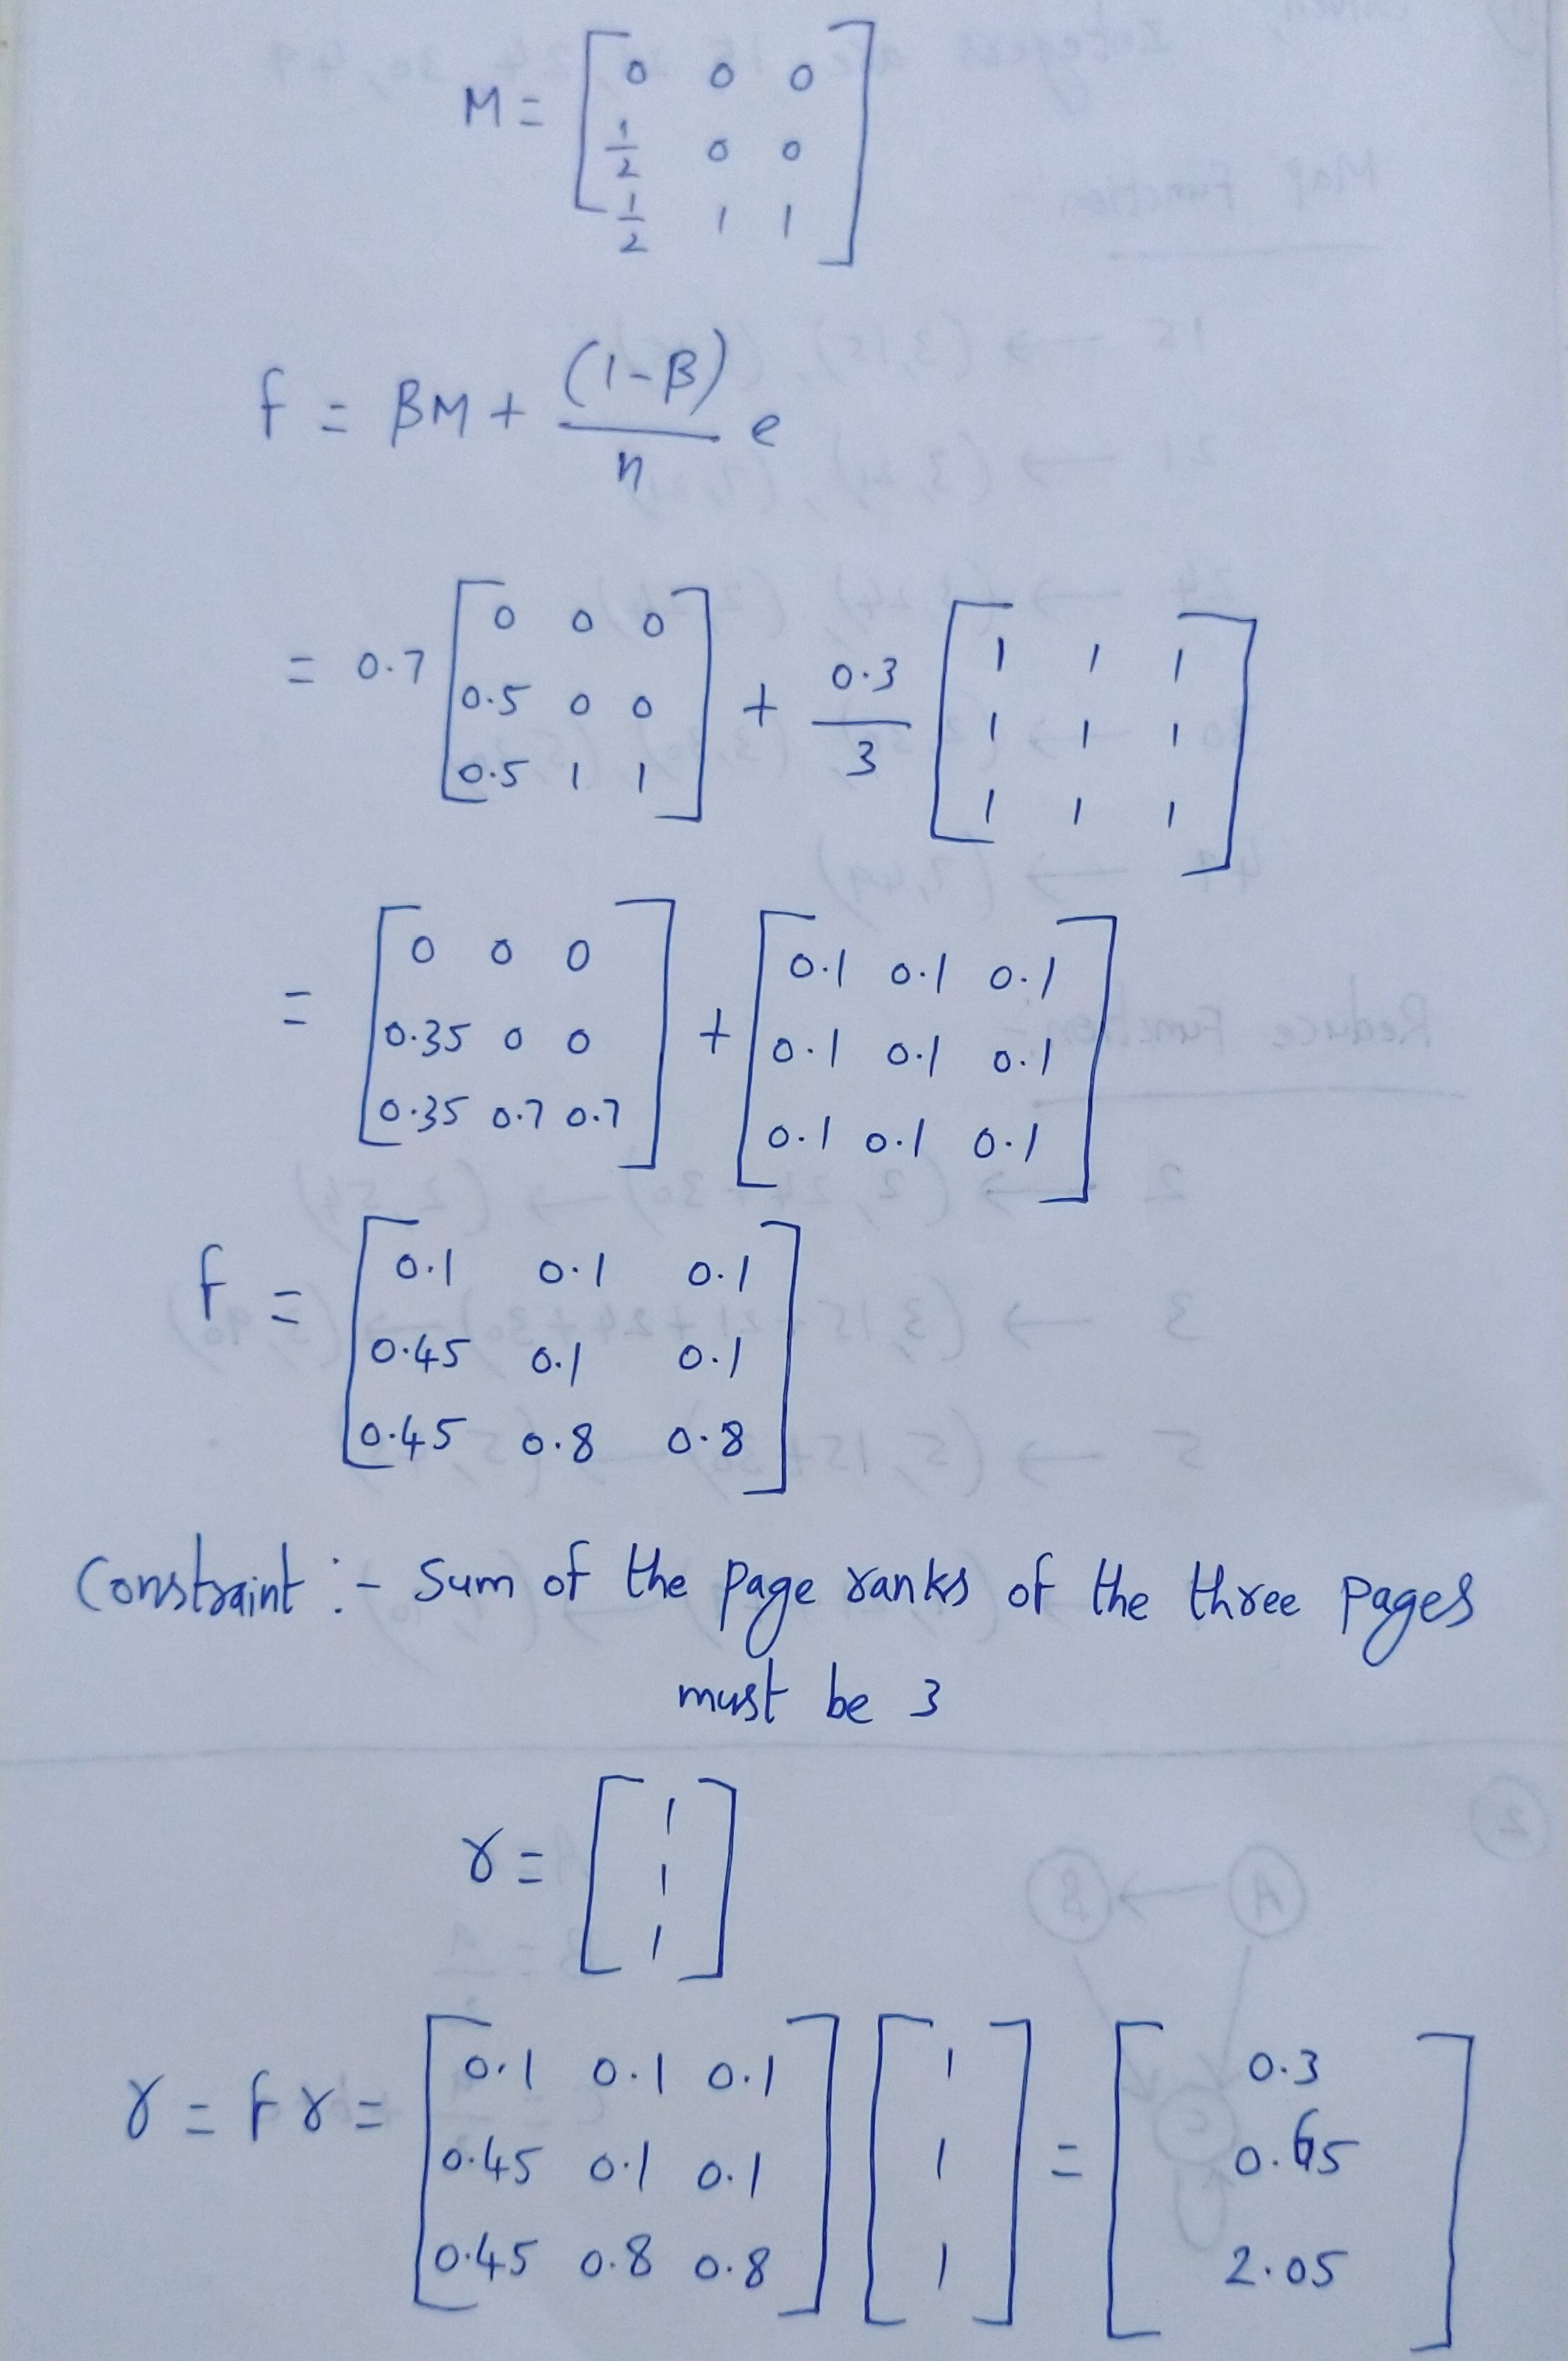 M = [ 0 0 0
1/2 0 0
1/2 1 1 ]
f = βM + (1-β)/n e
= 0.7 [ 0 0 0
0.5 0 0
0.5 1 1 ] + 0.3/3 [ 1 1 1
1 1 1
1 1 1 ]
= [ 0 0 0
0.35 0 0
0.35 0.7 0.7 ] + [ 0.1 0.1 0.1
0.1 0.1 0.1
0.1 0.1 0.1 ]
f = [ 0.1 0.1 0.1
0.45 0.1 0.1
0.45 0.8 0.8 ]
Constraint :- Sum of the page ranks of the three pages
must be 3
r = [ 1
1
1 ]
r = f r = [ 0.1 0.1 0.1
0.45 0.1 0.1
0.45 0.8 0.8 ] [ 1
1
1 ] = [ 0.3
0.65
2.05 ]